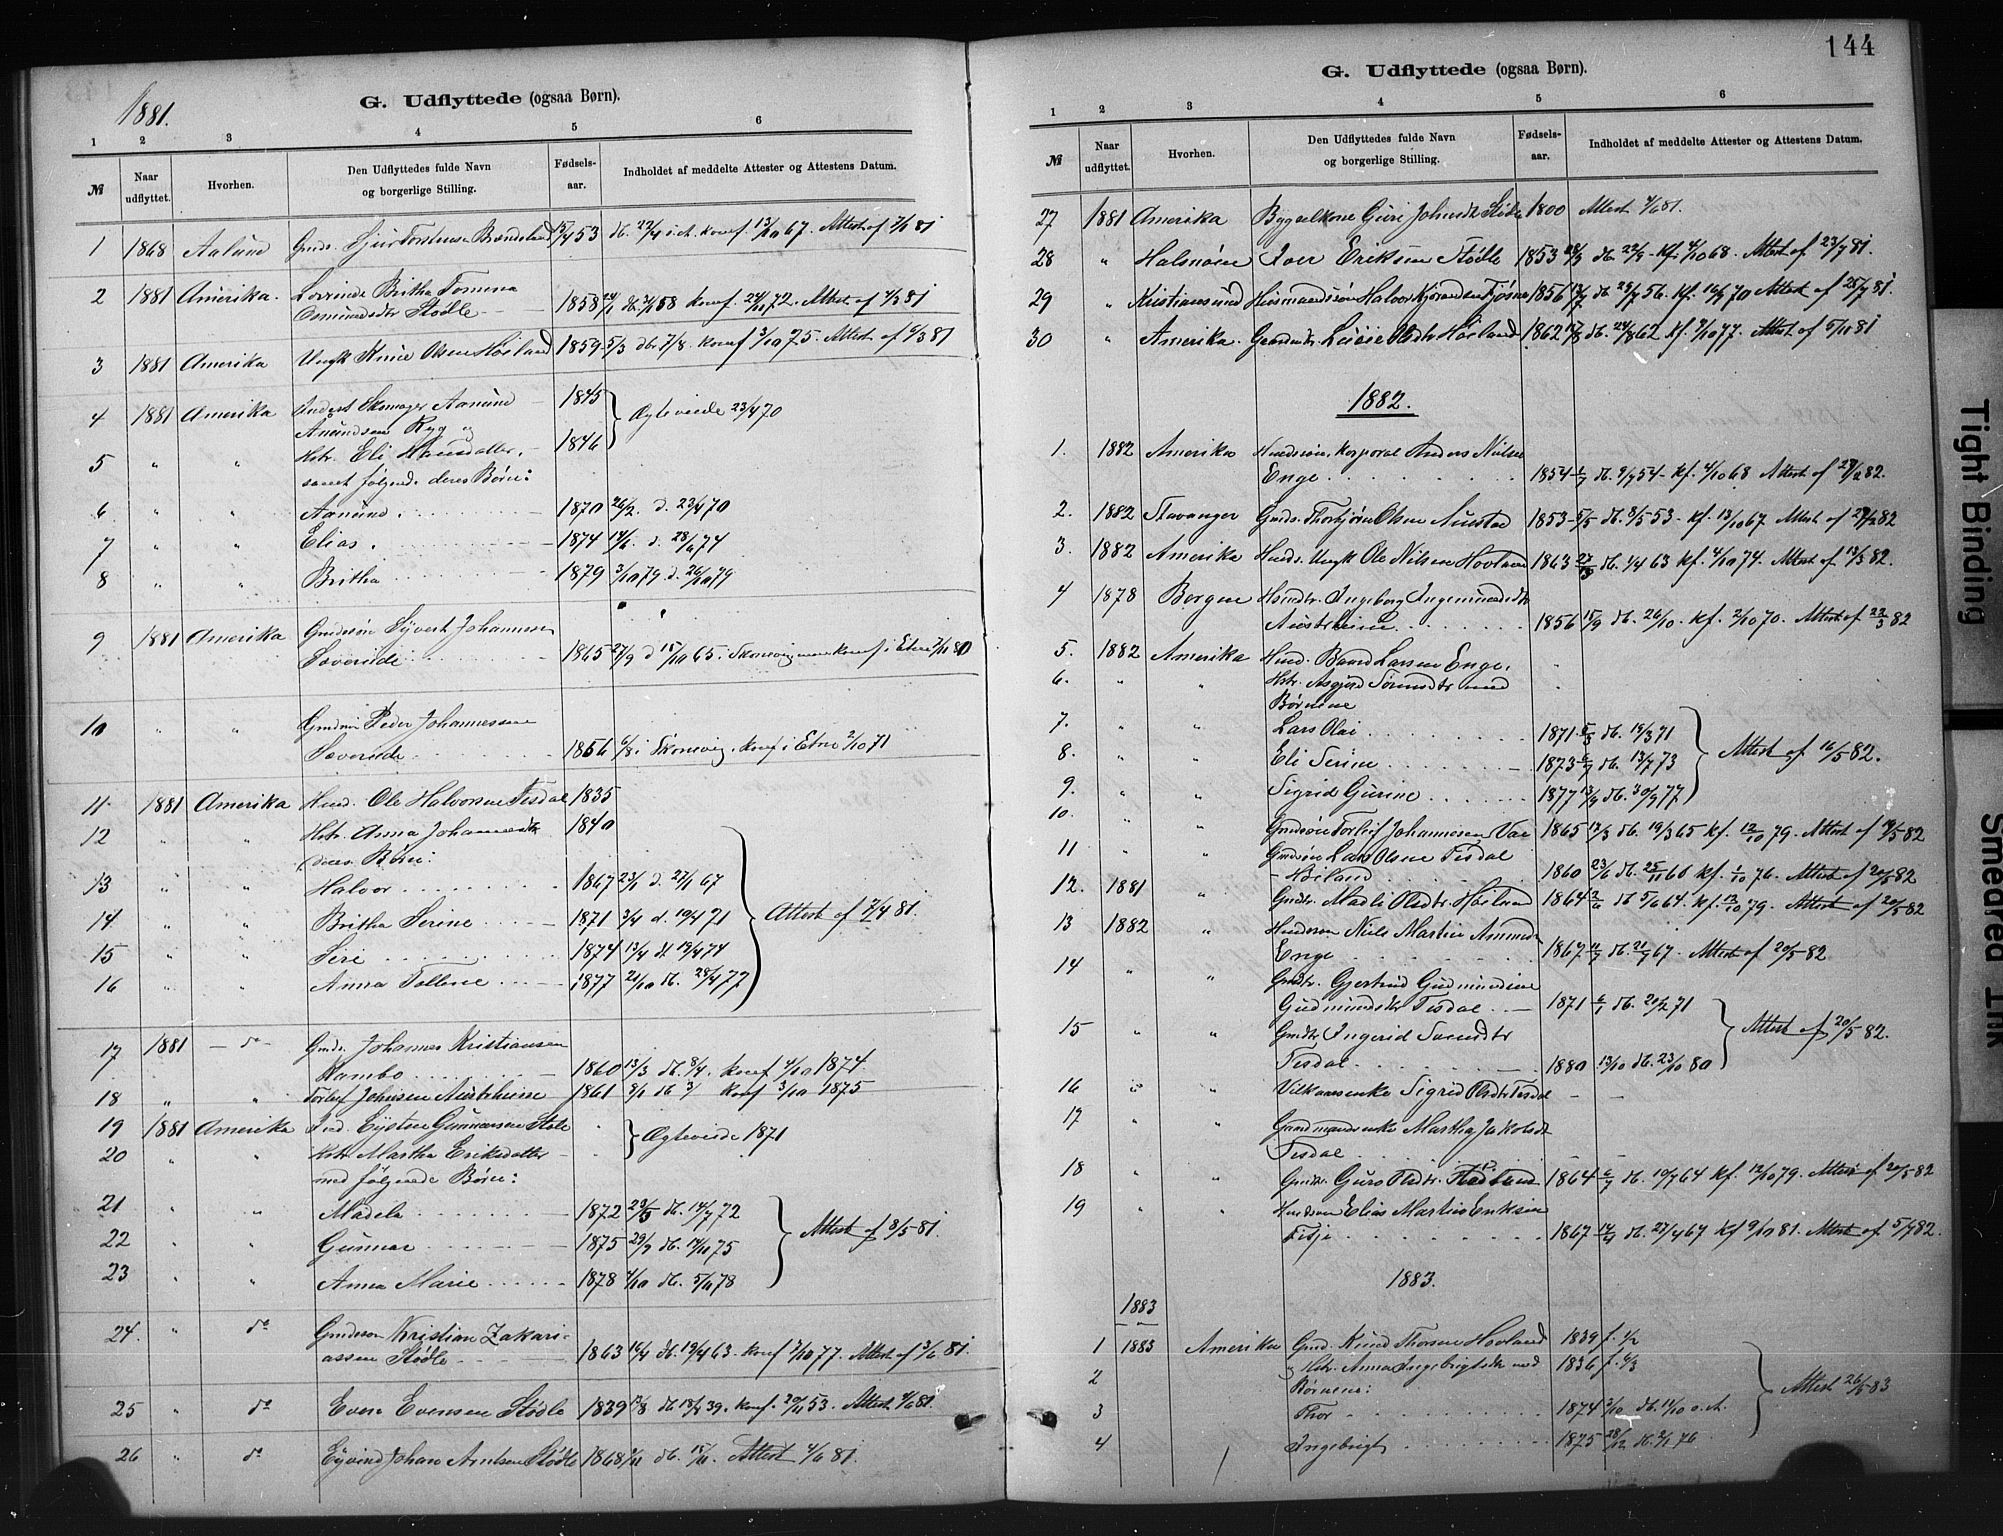 144
1881.
G. Udflyttede (ogsaa Børn).
1 2 3 4 5 6
№ Naar udflyttet. Hvorhen. Den Udflyttedes fulde Navn og borgerlige Stilling. Fødsels-aar. Indholdet af meddelte Attester og Attestens Datum.
1 1868 Aalund Gmds. Sjur Torstensen 15/4 53 db. 22/4 i A. konf. 13/10 67. Attest af 7/1 81
2 1881 Amerika. Britha Tomina
Osmundsdtr Stødle 1858 db. 58 konf. 72. Attest af 81
3 1881 Amerika Ungk Knud Olsen Høiland 1859 5/3 db. 7/8. konf 3/10 75. Attest af 4/3 81
4 1881 Amerika Inderst Skomager Aamund 1845
Amundsen Ryg og Ægteviede 23/4 70
5 " " Hstr. Eli Hansdatter, 1846
samt følgende deres Børn:
6 " " Aamund. 1870 26/2. d. 23/4 70
7 " " Elias. 1874 14/6 d. 28/6 74
8 " " Britha 1879 3/10 79 d. 26/10 79
9 1881 Amerika Gmdssøn Syvert Johannesen
Severeide 1865 27/9 d 15/10 65 i Skonevig konf i Etne 3/10 80
10 " " Gmdssøn Peder Johannessen
Severeide 1856 6/8 i Skonevig. konf i Etne 2/10 71
11. 1881 Amerika Husmd. Ole Halvorsen Tesdal 1835
12 " " Hstr. Anna Johannesdtr 1840
deres Børn:
13 " " Halvor 1867 23/1 d. 27/1 67
14 " " Britha Serine 1871 3/4 d. 10/4 71 Attest af 7/4 81.
15 " " Siri 1874 13/4 d 19/4 74
16 " " Anna Tolline 1877 21/10 db. 28/10 77
17 1881 — do — Gmds. Johannes Kristiansen
Hambo 1860 13/3 db. 8/4. konf 4/10 1874
18 " " Torleif Johnsen Austrheim 1861 8/2 db 3/ konf 3/10 1875
19 1881 Amerika Ind. Eysten Gunnarsen Støle Ægteviede 1871
20 " " Hstr Martha Eriksdatter
med følgende Børn:
21 " " Madela 1872 29/5 db. 14/7 72
22 " " Gunnar 1875 29/9 db. 14/11 75 Attest af 3/5 81.
23 " " Anna Marie 1878 4/10 db. 5/10 78
24. " do Gmdssøn Kristian Zakari-
assen Stødle 1863 14/4 db. 19/4 63. konf 7/10 77. Attest af 3/6 81.
25 " do Even Evensen Stødle 1839 12/8 db 18/8 39. konf. 20/11 53. Attest 4/6 81.
26 " do Eyvind Johan Arntsen Stødle 1868 8/11 db. 15/11. Attest 4/6 81.
G. Udflyttede (ogsaa Børn).
1 2 3 4 5 6
№ Naar udflyttet. Hvorhen. Den Udflyttedes fulde Navn og borgerlige Stilling. Fødsels-aar. Indholdet af meddelte Attester og Attestens Datum.
27 1881 Amerika Bygselkone Guri Johnsdtr Stødle 1800 Attest 4/6 81.
28 " Halsnøen Iver Eriksen Stødle 1853 28/8 db 22/9 - Kf. 4/10 68. Attest af 23/7 81.
29 " Kristiansund Husmandssøn Halvor 1856 13/7 db 23/7 56. Kf. 16/9 70 Attest af 25/7 81.
30 " Amerika. Gaardmdtr. Lovise Olsdtr Høiland 1862 17/8 db. 24/8 62 kf. 9/10 77. Attest af 5/10 81
1882.
1. 1882 Amerika Husmdssøn, Korporal Anders Nielsen
Enge 1854 2/7 db. 9/7 54 - Kf. 4/10 68 Attest af 27/2 82.
2. 1882 Stavanger Gmds. Thorbjørn Olsen Austad 1853 - 5/5 db. 8/5 53 - kf. 13/10 67 Attest af 27/2 82
3. 1882 Amerika Husmds. Ungk Ole Nilsen Hovland 1863 27/3 db. 1/4 63 kf. 4/10 74. Attest af 13/3 82.
4 1878 Bergen Husmdtr. Ingeborg Ingemundsdtr
Austrheim 1856 15/9 db. 26/10. kf. 2/10 70. Attest af 22/3 82
5. 1882 Amerika Husmd. Baard Larsen Enge.
6. " " Hstr. Asgjerd Sørensdtr med
Børnene
7. " " Lars Olai 1871 5/3 db. 19/3 71
8. " " Eli Serine 1873 6/7 db. 13/7 73 Attest af 16/5 82.
9. " " Sigrid Gurine 1877 13/9 db. 30/9 77
10. " " Gmdssøn Torleif Johannesen Vae 1865 12/3 db. 19/3 65 kf. 12/10 79. Attest af 19/5 82
11 " " Gmdssøn Lars Olsen Tesdal
- Høiland 1860 23/6 db. 25/11 60 kf. 1/10 76. Attest af 20/5 82
12. 1881 " Gmdtr. Madli Olsdtr. Høiland 1864 2/6 db 5/6 64. kf. 12/10 79. Attest af 20/5 82
13 1882 " Husmdssøn Niels Martin
Enge 1867 11/7 db. 21/7 67. Attest af 20/5 82
14 " " Gmdtr. Gjertrud Gudmundine
Gudmundsdtr Tesdal 1871 6/1 db. 20/2 71
15 " " Gmdtr. Ingerid Svendsdtr Attest af 20/5 82.
Tesdal 1880 13/10 db. 23/10 80
16 " " Vilkaarsenke Sigrid Olsdtr Tesdal
17 " " Gaardmandsenke Martha Jakobsdtr
Tesdal
18 " " Gmdtr. Guro Olsdtr. 1864 6/7 db. 10/7 64 kf. 12/10 79. Attest af 20/5 82
19 " " Husmdssøn Elias Martin Eriksen
Fitje 1867 14/4 db. 27/4 67 kf 9/10 81. Attest af 5/7 82.
1883.
1883
1 1883 Amerika Gmd. Knud Thorsen Hovland 1839 f. 1/2
2 " Hstr. Anna Ingebrigtsdtr med 1836 f. 4/3
Børnene:
3 Thor 1874 2/10 db. 11/10 s. A. Attest 26/5 83
4 Ingebrigt 1875 28/12 db. 2/1 76
Tight Binding
Smeared Ink